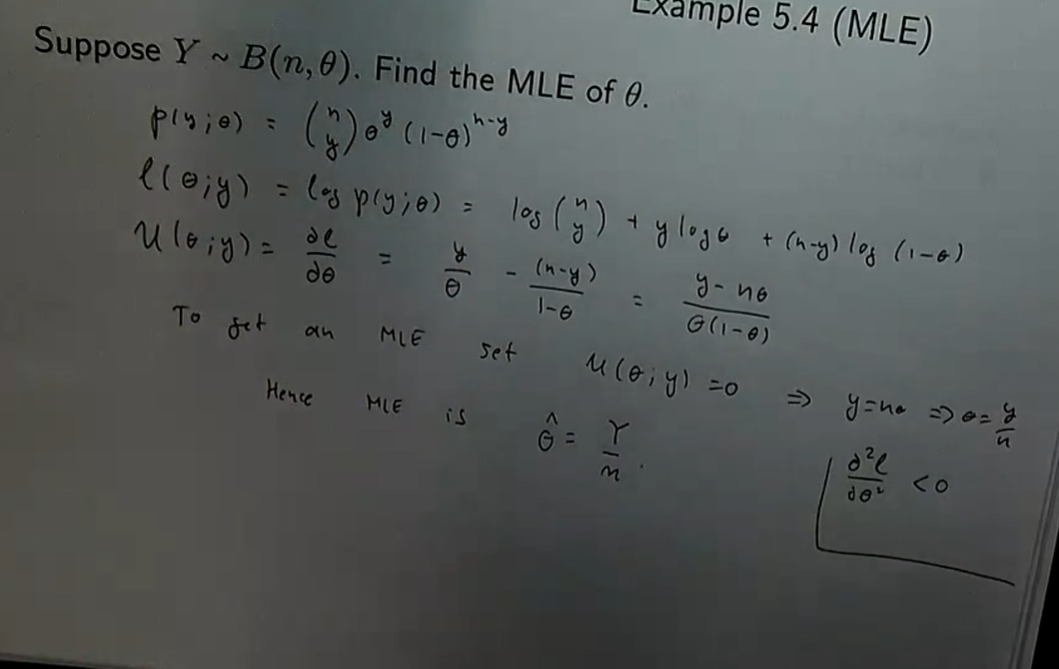 Example 5.4 (MLE)
Suppose Y ~ B(n, θ). Find the MLE of θ.
p(y;θ) = (n y) θ^y (1-θ)^{n-y}
ℓ(θ;y) = log p(y;θ) = log (n y) + y log θ + (n-y) log (1-θ)
U(θ;y) = ∂ℓ/∂θ = y/θ - (n-y)/(1-θ) = (y-nθ)/(θ(1-θ))
To get an MLE set U(θ;y) = 0 ⇒ y=nθ ⇒ θ= y/n
Hence MLE is θ̂ = Y/n.
∂²ℓ/∂θ² < 0